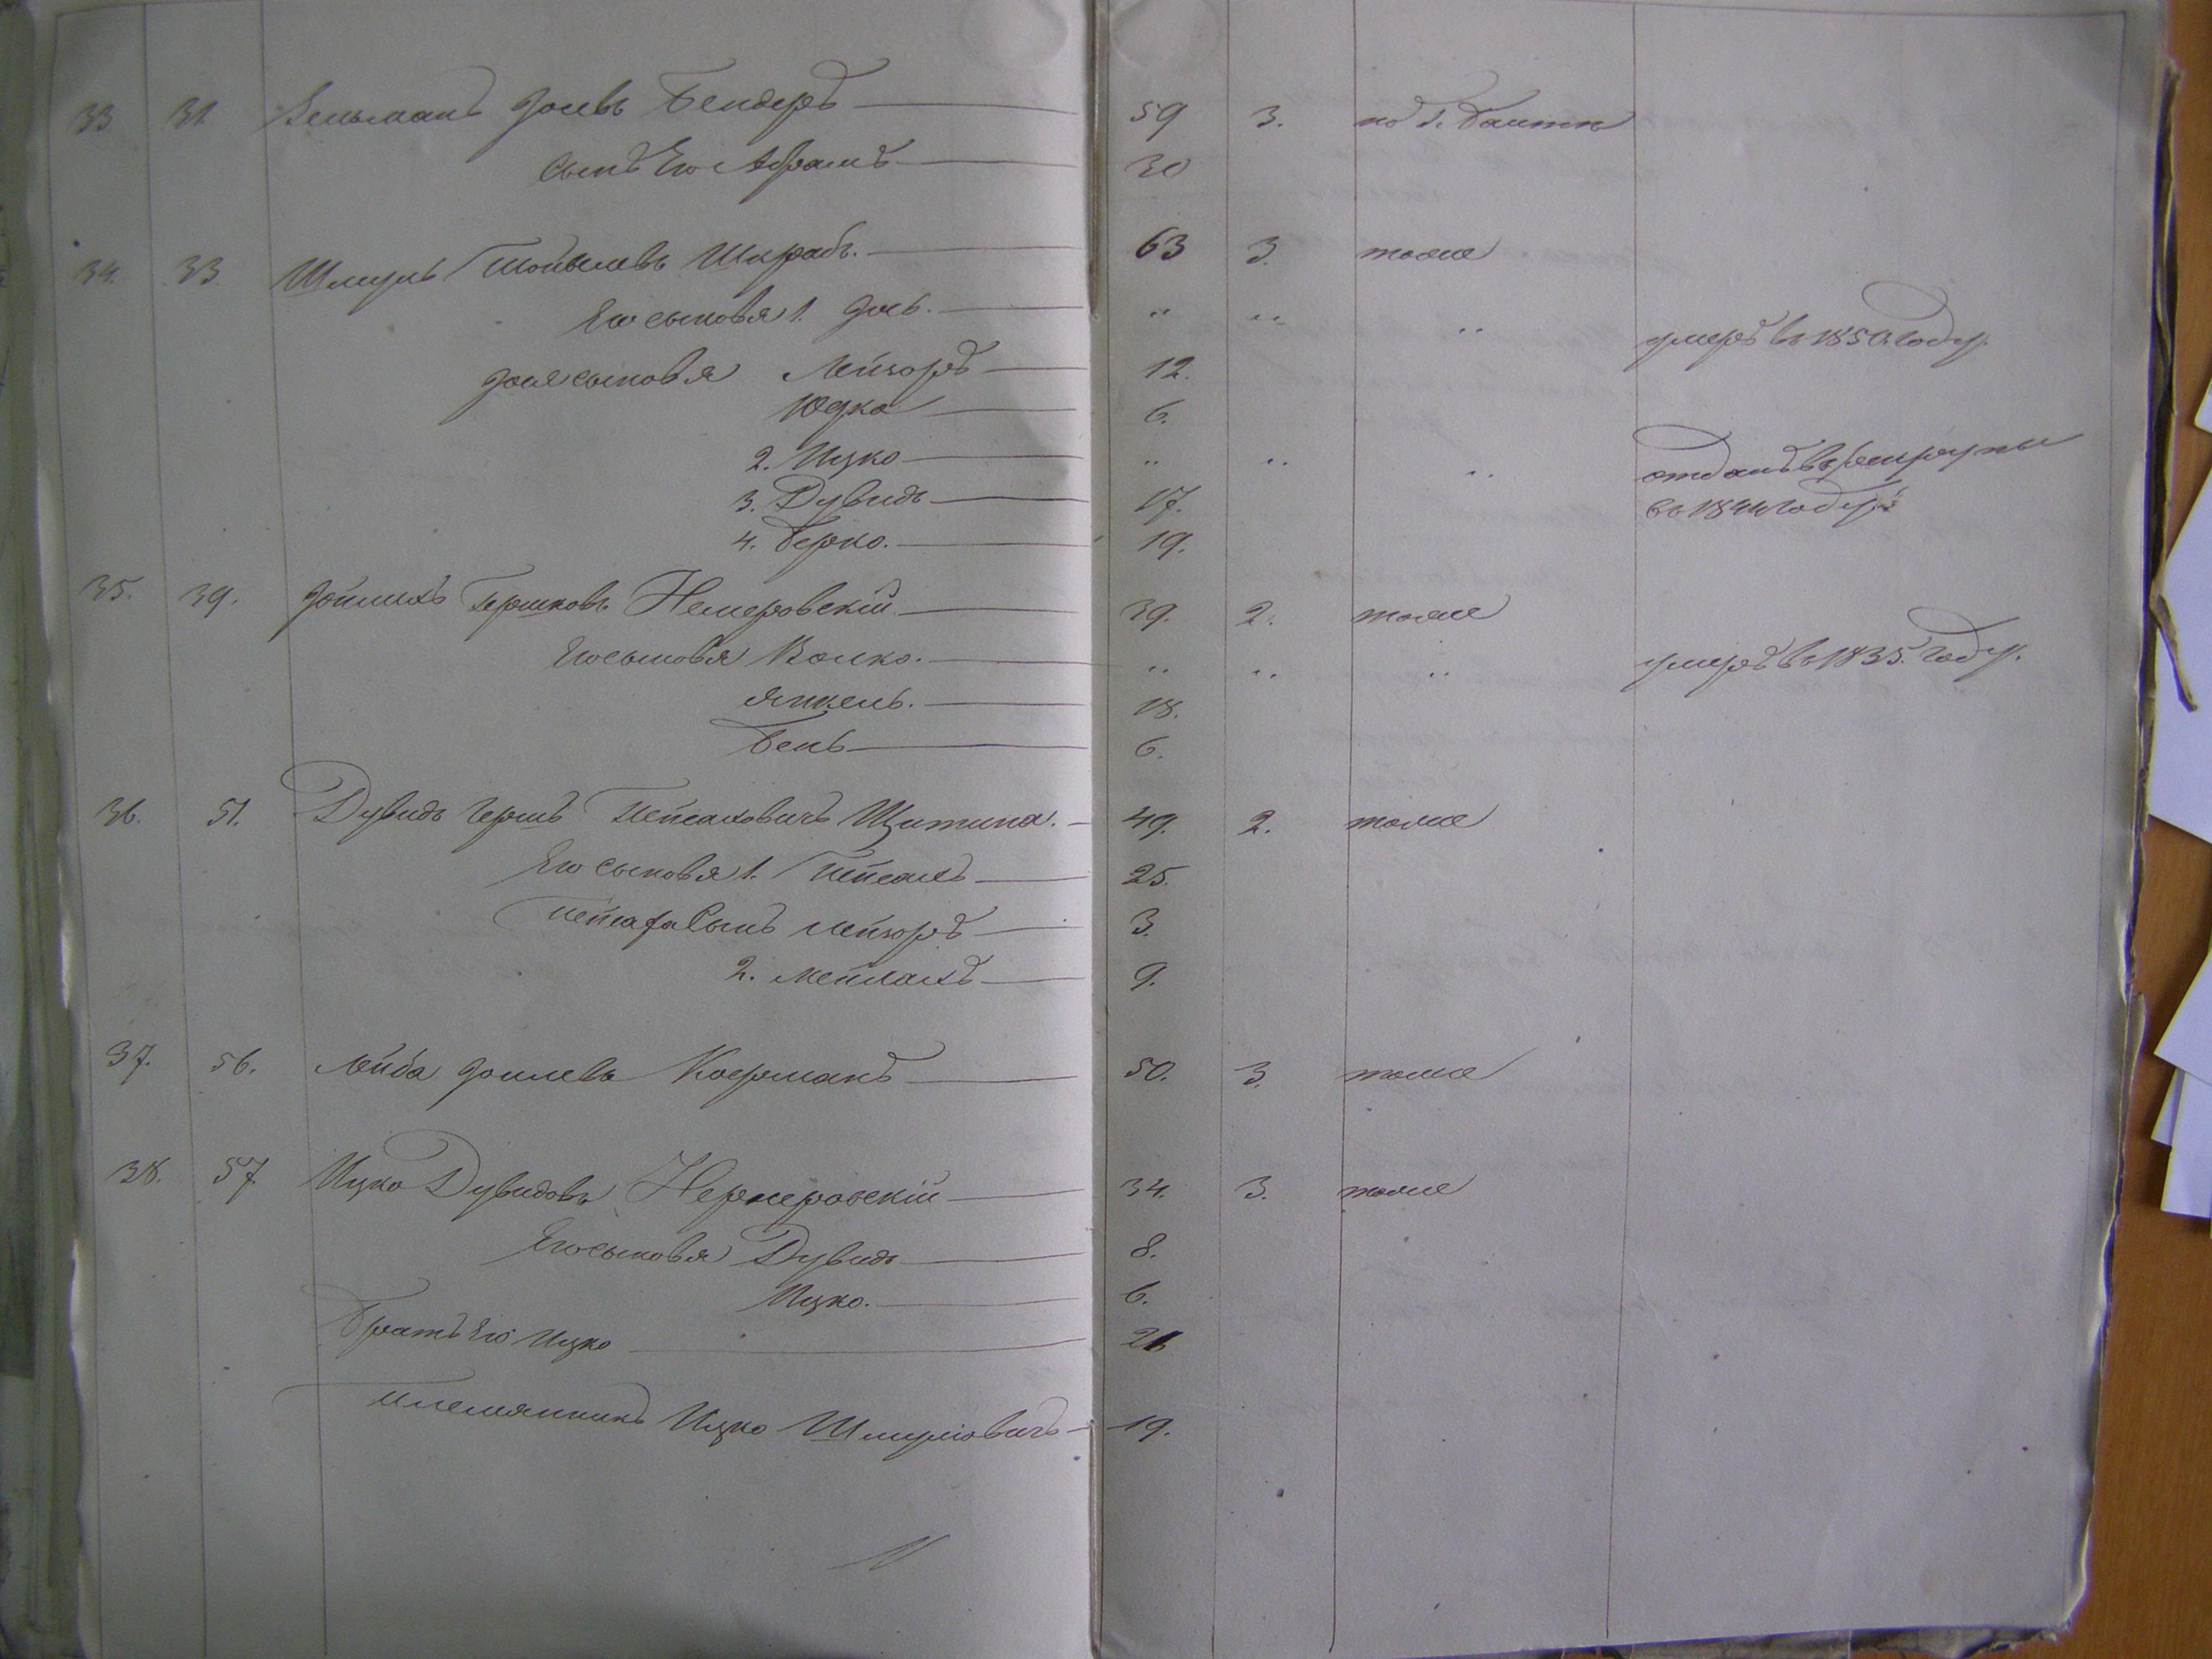 33 31 Зельманъ Іосевъ Бендеръ 59 3. по г. Балтѣ
Сынъ Его Абрамъ 30
34. 33. Шмуль Шкрабъ. 63 3. тоже
Его сыновья 1. Іось. " " " умеръ въ 1850 году.
Іося сыновья Лейзоръ 12.
Юдко 6.
2. Ицко " " " отданъ въ рекруты
3. Дувидъ 17. въ 1844 году.
4. Берко. 19.
35. 39. Іойлихъ Гершковъ Немеровскій 39. 2. тоже
Его сыновья Волко. " " " умеръ въ 1835. году.
Янкель. 18.
Бень 6.
36. 51. Дувидъ Гершъ Пейсаховичъ Щитина. 49. 2. тоже
Его сыновья 1. Пейсахъ 25.
Пейсаха Сынъ Лейзоръ 3.
2. Мейлахъ 9.
37. 56. Лейба Іойлевъ Коерманъ 50. 3. тоже
38. 57 Ицко Дувидовъ Немеровскій 34. 3. тоже
Его сыновья Дувидъ 8.
Ицко. 6.
Братъ Его Ицко 21
Племянникъ Ицко Шмулёвичъ 19.